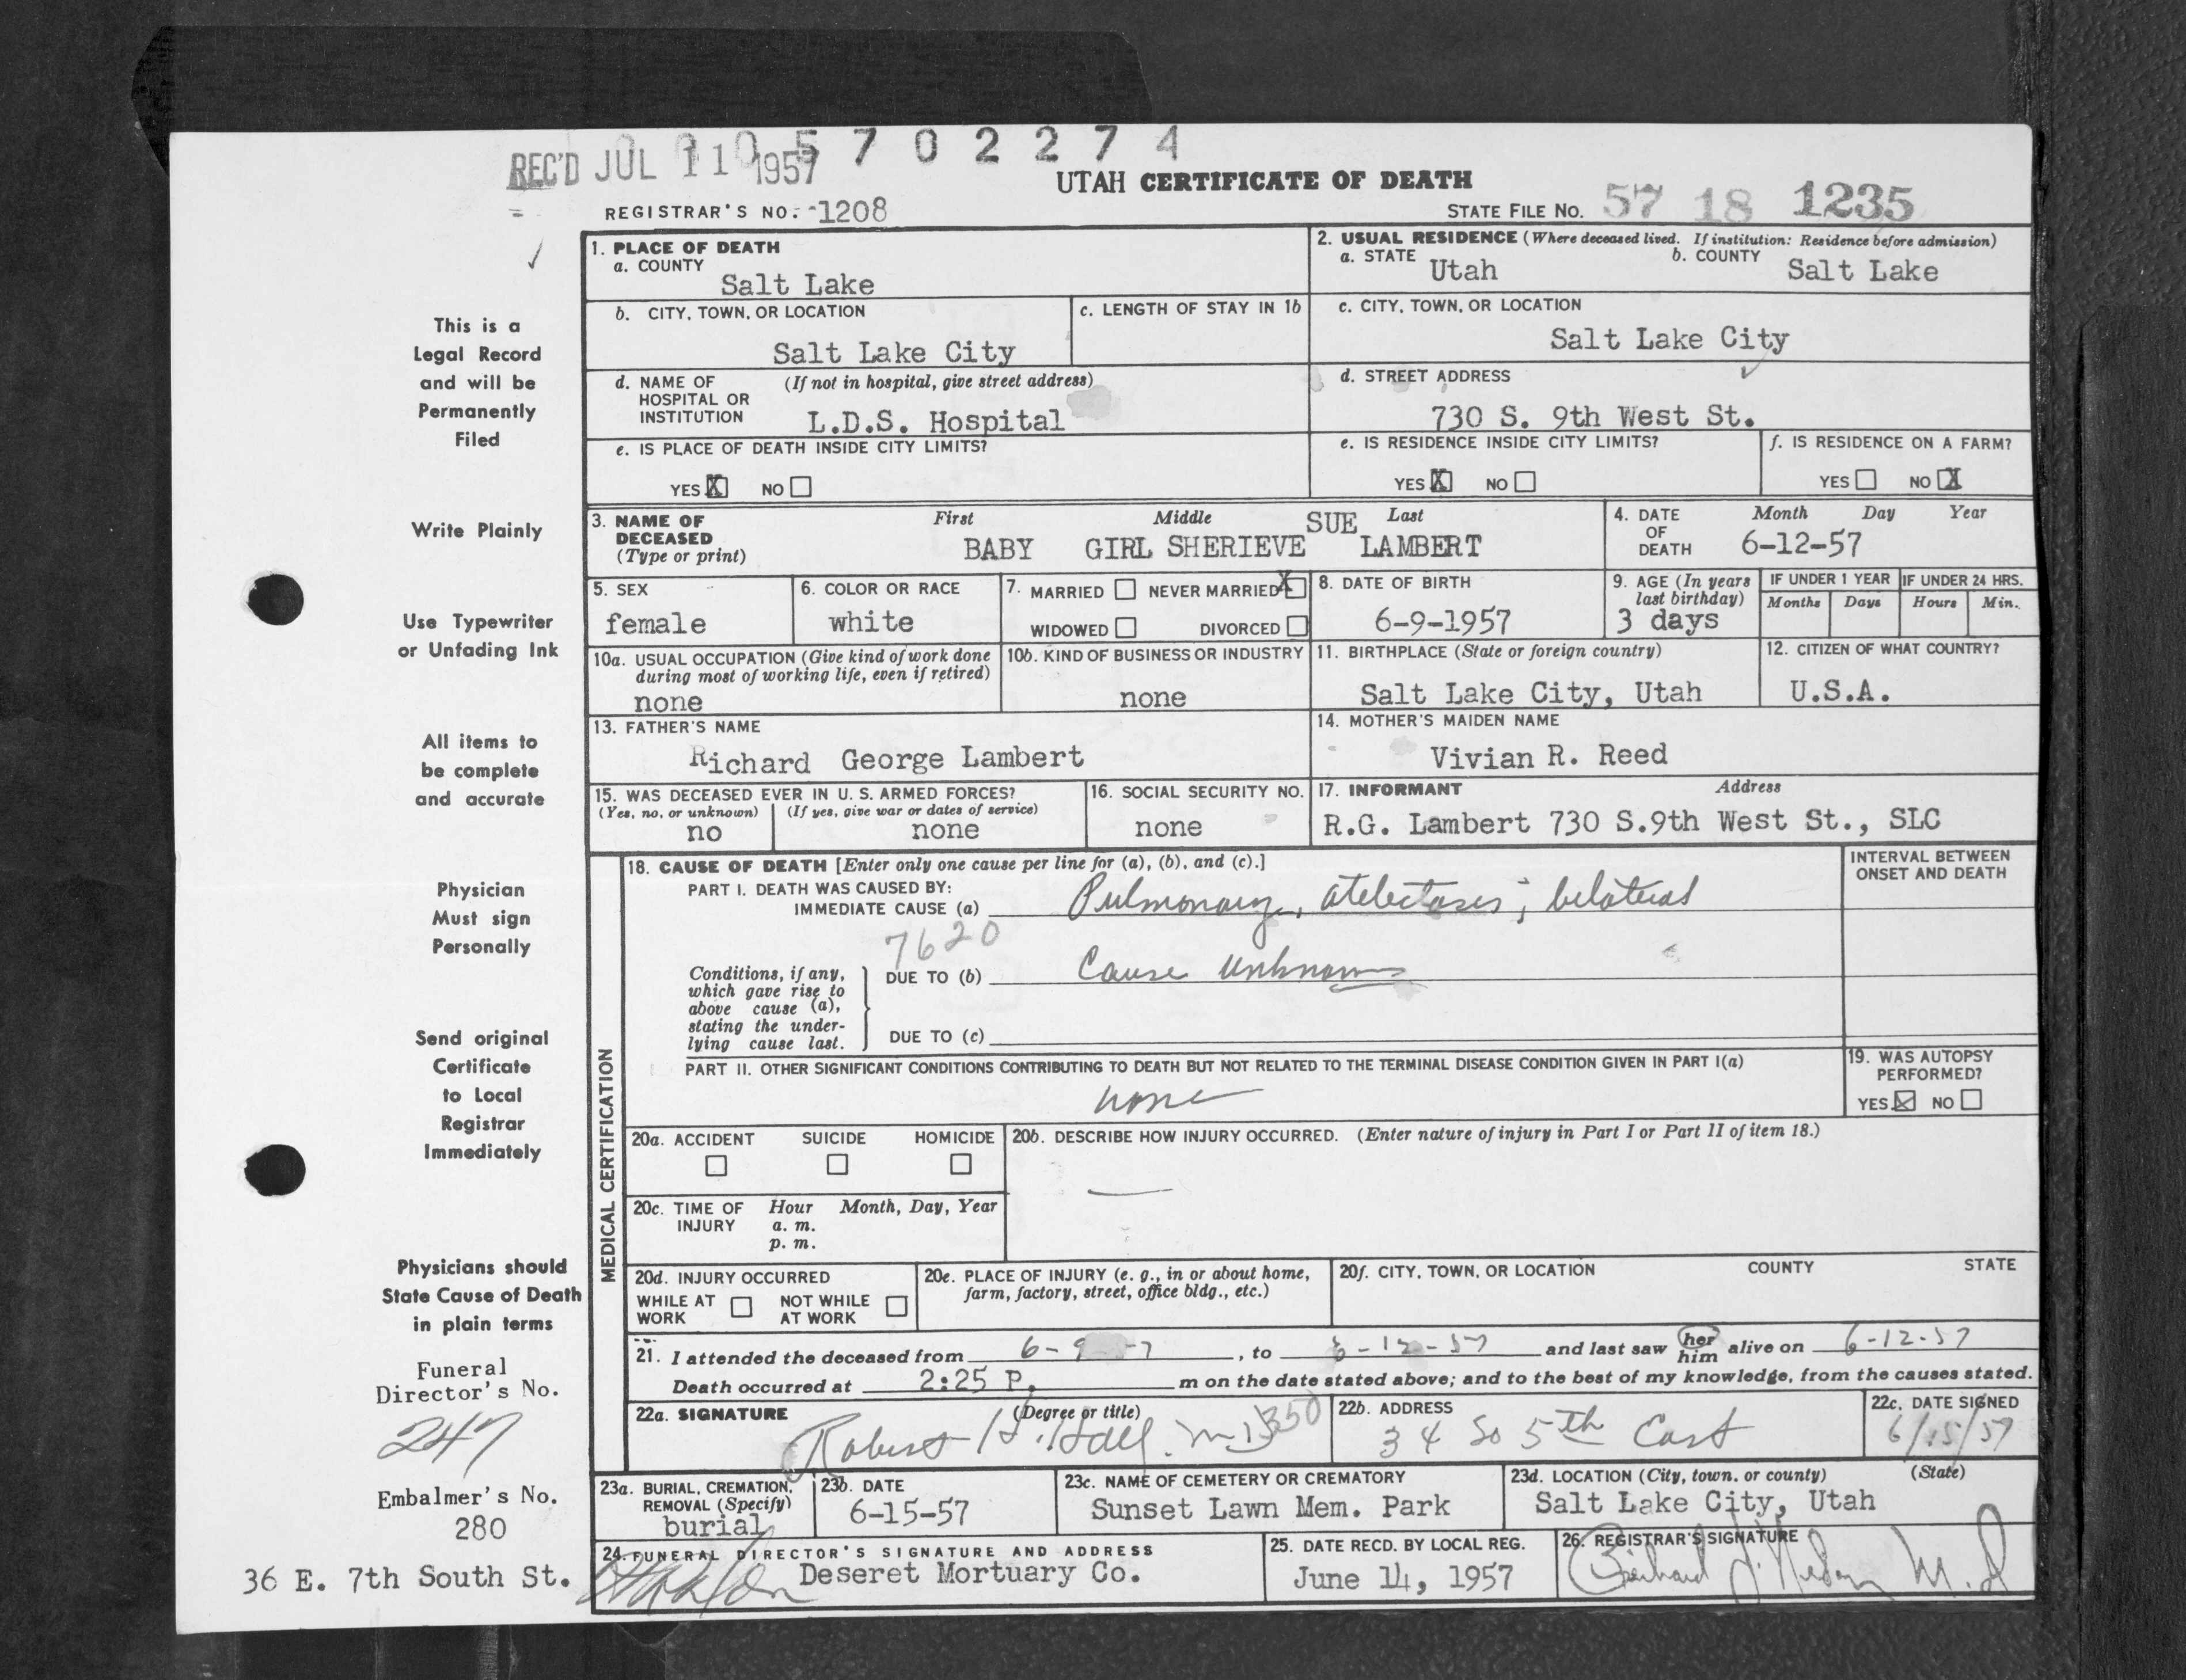 REC'D JUL 11 1957
5702274
UTAH CERTIFICATE OF DEATH
REGISTRAR'S NO. 1208
STATE FILE NO. 57 18 1235
1. PLACE OF DEATH
a. COUNTY
Salt Lake
2. USUAL RESIDENCE (Where deceased lived. If institution: Residence before admission)
a. STATE Utah b. COUNTY Salt Lake
b. CITY, TOWN, OR LOCATION
Salt Lake City
c. LENGTH OF STAY IN 1b
c. CITY, TOWN, OR LOCATION
Salt Lake City
d. NAME OF HOSPITAL OR INSTITUTION (If not in hospital, give street address)
L.D.S. Hospital
d. STREET ADDRESS
730 S. 9th West St.
e. IS PLACE OF DEATH INSIDE CITY LIMITS?
YES X NO
e. IS RESIDENCE INSIDE CITY LIMITS?
YES X NO
f. IS RESIDENCE ON A FARM?
YES NO X
3. NAME OF DECEASED (Type or print)
First Middle Last
SUE
BABY GIRL SHERIEVE LAMBERT
4. DATE OF DEATH Month Day Year
6-12-57
5. SEX
female
6. COLOR OR RACE
white
7. MARRIED NEVER MARRIED X
WIDOWED DIVORCED
8. DATE OF BIRTH
6-9-1957
9. AGE (In years last birthday)
3 days
IF UNDER 1 YEAR
Months Days
IF UNDER 24 HRS.
Hours Min.
10a. USUAL OCCUPATION (Give kind of work done during most of working life, even if retired)
none
10b. KIND OF BUSINESS OR INDUSTRY
none
11. BIRTHPLACE (State or foreign country)
Salt Lake City, Utah
12. CITIZEN OF WHAT COUNTRY?
U.S.A.
13. FATHER'S NAME
Richard George Lambert
14. MOTHER'S MAIDEN NAME
Vivian R. Reed
15. WAS DECEASED EVER IN U. S. ARMED FORCES?
(Yes, no, or unknown) (If yes, give war or dates of service)
no none
16. SOCIAL SECURITY NO.
none
17. INFORMANT Address
R.G. Lambert 730 S.9th West St., SLC
MEDICAL CERTIFICATION
18. CAUSE OF DEATH [Enter only one cause per line for (a), (b), and (c).]
INTERVAL BETWEEN ONSET AND DEATH
PART I. DEATH WAS CAUSED BY:
IMMEDIATE CAUSE (a) Pulmonary, atelectasis; bilateral
7620
Conditions, if any, which gave rise to above cause (a), stating the underlying cause last.
DUE TO (b) Cause unknown
DUE TO (c)
PART II. OTHER SIGNIFICANT CONDITIONS CONTRIBUTING TO DEATH BUT NOT RELATED TO THE TERMINAL DISEASE CONDITION GIVEN IN PART I(a)
none
19. WAS AUTOPSY PERFORMED?
YES X NO
20a. ACCIDENT SUICIDE HOMICIDE
20b. DESCRIBE HOW INJURY OCCURRED. (Enter nature of injury in Part I or Part II of item 18.)
20c. TIME OF INJURY Hour Month, Day, Year
a. m.
p. m.
20d. INJURY OCCURRED
WHILE AT WORK NOT WHILE AT WORK
20e. PLACE OF INJURY (e. g., in or about home, farm, factory, street, office bldg., etc.)
20f. CITY, TOWN, OR LOCATION COUNTY STATE
21. I attended the deceased from 6-9-57, to 6-12-57 and last saw her him alive on 6-12-57
Death occurred at 2:25 P. m on the date stated above; and to the best of my knowledge, from the causes stated.
22a. SIGNATURE (Degree or title)
Robert H. Hall M.D. 350
22b. ADDRESS
34 So 5th East
22c. DATE SIGNED
6/15/57
23a. BURIAL, CREMATION, REMOVAL (Specify)
burial
23b. DATE
6-15-57
23c. NAME OF CEMETERY OR CREMATORY
Sunset Lawn Mem. Park
23d. LOCATION (City, town, or county) (State)
Salt Lake City, Utah
24. FUNERAL DIRECTOR'S SIGNATURE AND ADDRESS
Deseret Mortuary Co.
25. DATE RECD. BY LOCAL REG.
June 14, 1957
26. REGISTRAR'S SIGNATURE
M.D
This is a
Legal Record
and will be
Permanently
Filed
Write Plainly
Use Typewriter
or Unfading Ink
All items to
be complete
and accurate
Physician
Must sign
Personally
Send original
Certificate
to Local
Registrar
Immediately
Physicians should
State Cause of Death
in plain terms
Funeral
Director's No.
247
Embalmer's No.
280
36 E. 7th South St.